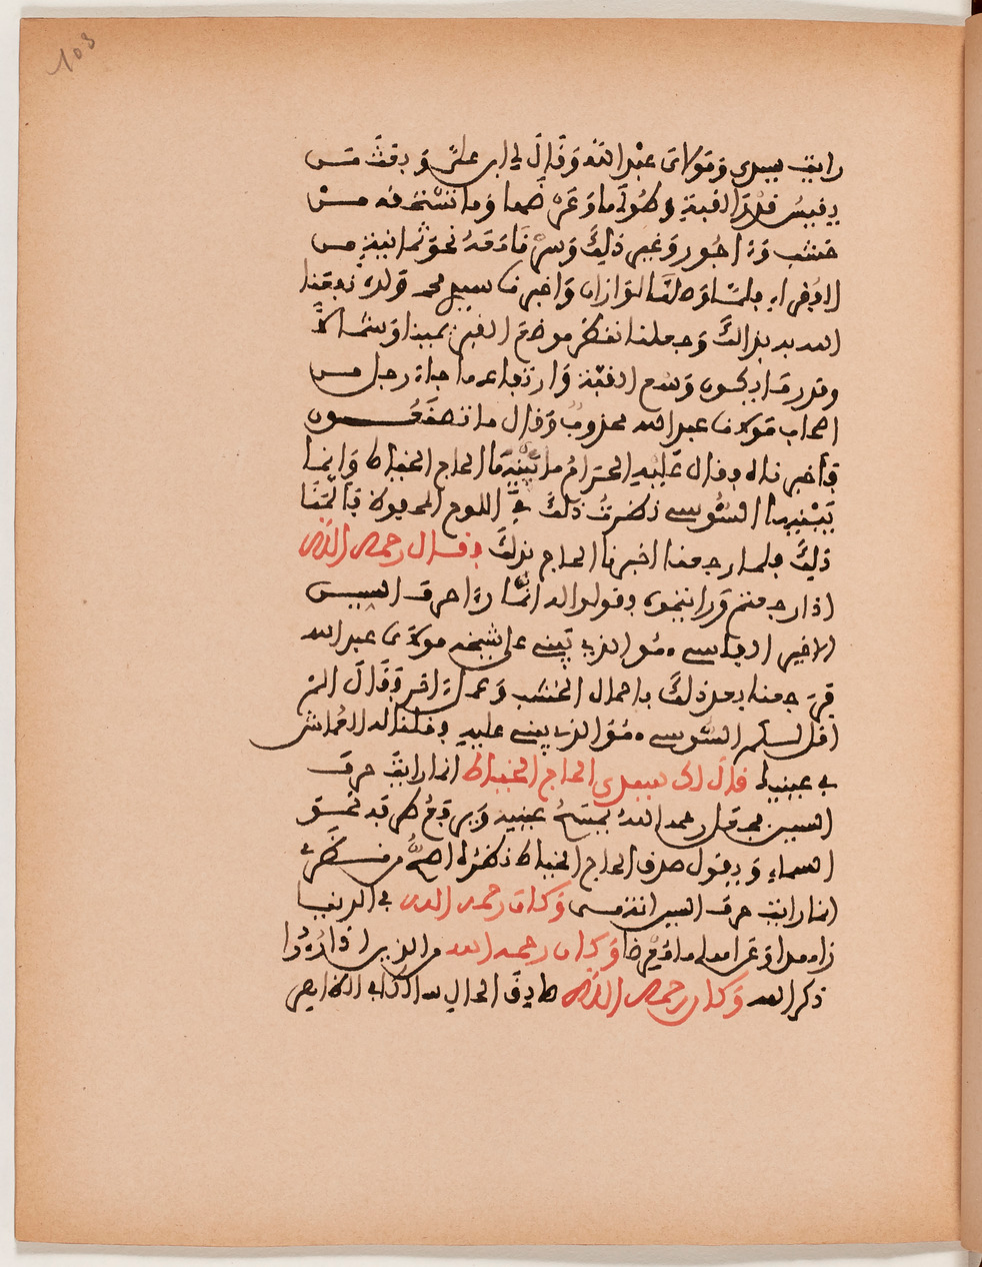 103
رايت سيدي ومولاي عبد الله وقال لي ابن علي وبعث مـــن
يقيس قدر القبة وطولها وعرضها وما تستحقه مـــن
خشب وءاجور وغير ذلك وسر فادفه نحو ثمانية مـــن
الفقراء فلما وصلنا لوازان واخبرنا سيدي محمد ولده نفعنا
الله به بذالك وجعلنا نفكر موضع القبر يمينا وشمالا
وقدر ما يكون وسع القبة وارتفاعها فجاء رجل مـــن
اصحاب مولانا عبد الله مجذوب وقال ما تصنعـــون
فاخبرناه فقال عليه الحرام ما يبنيها الحاج الخياط وانما
يبنيها السوسي نظرت ذلك في اللوح المحفوظ فالمنا
ذلك فلما رجعنا اخبرنا الحاج بذلك فقال رحمه الله
اذا رجعتم ورايتموه فقولوا له انما راء احرف السيـــن
الاخير الفاسي هو الذي يبني على شيخه مولاي عبد الله
فرجعنا بعد ذلك باحمال الخشب وعمل ءاخر فقال الم
اقل لكم السوسي هو الذي يبني عليه فقلنا له الاعماش
في عينيك قال لك سيدي الحاج الخياط انما رايت حرف
السين فجعل رحمه الله يمسح عينيه ويرفع طرفه نحـــو
السماء ويقول صدق الحاج الخياط نظره اصح من نظري
انما رايت حرف السين انتهـــى وكان رحمه الله في الدنيا
زاهدا وعن اهلها معرضا وكان رحمه الله من الذين اذا رءوا
ذكر الله وكان رحمه الله صادق الحال ساكتا في الظاهر